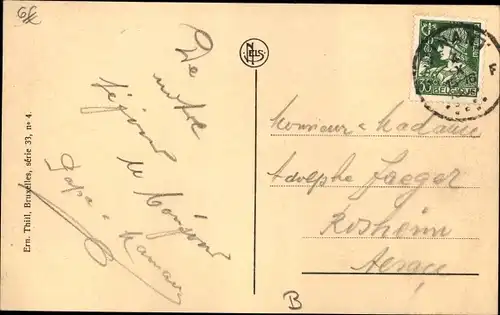 De notre
séjour
un bonjour
Papa - Maman
NELS
Ern. Thill, Bruxelles, série 33, nº 4.
BELGIQUE
Monsieur - Madame
Adolphe Jaeger
Rosheim
Alsace
B